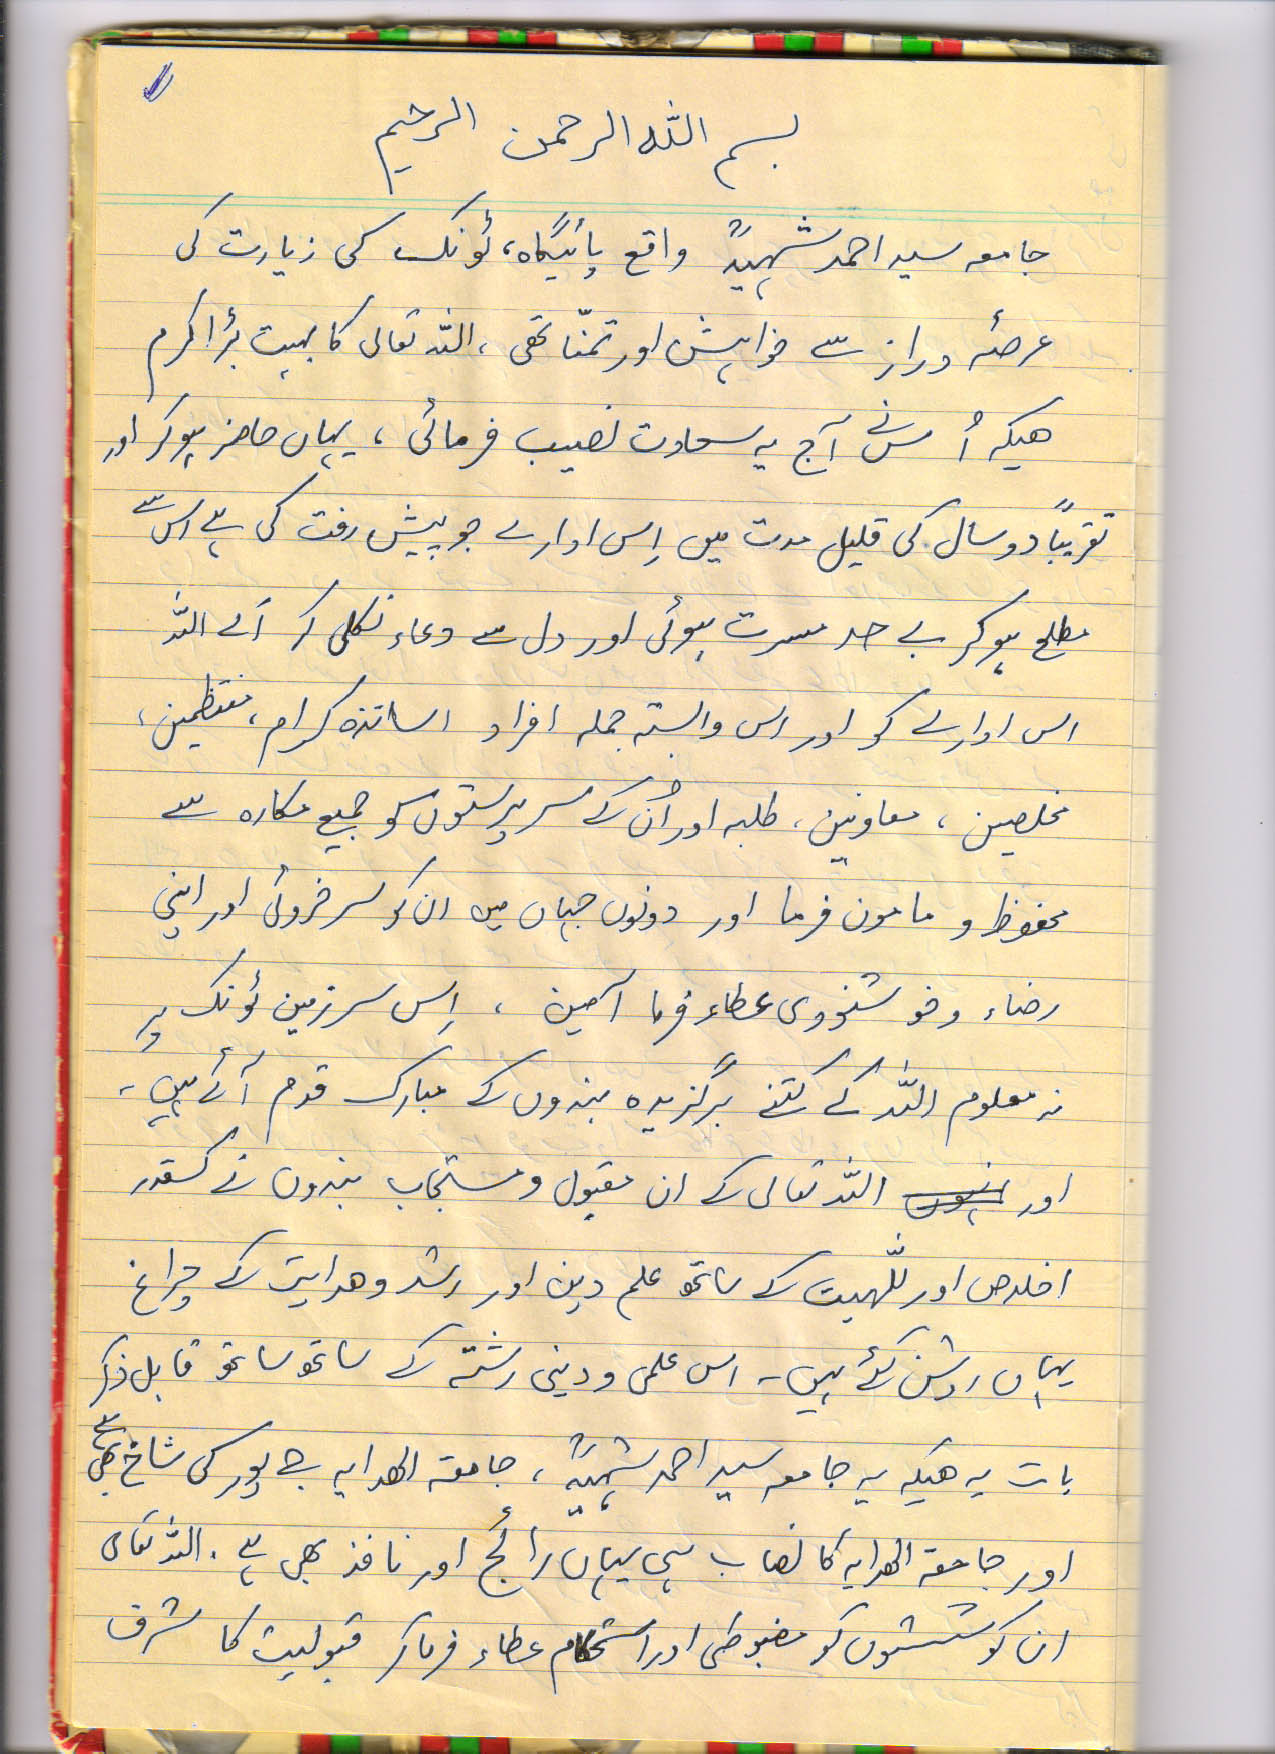 بسم اللہ الرحمن الرحیم
جامعہ سید احمد شہیدؒ واقع پائیگاہ، ٹونک کی زیارت کی
عرصۂ دراز سے خواہش اور تمنّا تھی، اللہ تعالی کا بہت بڑا کرم
ھیکہ اُس نے آج یہ سعادت نصیب فرمائی، یہاں حاضر ہوکر اور
تقریباً دو سال کی قلیل مدت میں اِس ادارے جو پیش رفت کی ہے اس سے
مطلع ہوکر بے حد مسرت ہوئی اور دل سے دعاء نکلی کہ اے اللہ
اس ادارے کو اور اس وابستہ جملہ افراد اساتذہ کرام، منتظمین،
مخلصین، معاونین، طلبہ اور اُن کے سرپرستوں کو جمیع مکارہ سے
محفوظ و مامون فرما اور دونوں جہاں میں ان کو سرخروئی اور اپنی
رضاء و خوشنودی عطاء فرما آمین، اِس سرزمین ٹونک پر
نہ معلوم اللہ کے کتنے برگزیدہ بندوں کے مبارک قدم آئے ہیں۔
اور اللہ تعالی کے ان مقبول و مستجاب بندوں نے کسقدر
اخلاص اور للّٰہیت کے ساتھ علم دین اور رشد و ھدایت کے چراغ
یہاں روشن کئے ہیں۔ اس علمی و دینی رشتہ کے ساتھ ساتھ قابل ذکر
بات یہ ھیکہ یہ جامعہ سید احمد شہیدؒ، جامعۃ الھدایہ جے پور کی شاخ بھی ہے
اور جامعۃ الھدایہ کا نصاب ہی یہاں رائج اور نافذ بھی ہے۔ اللہ تعالی
ان کوششوں کو مضبوطی اور استحکام عطاء فرماکر قبولیت کا شرف